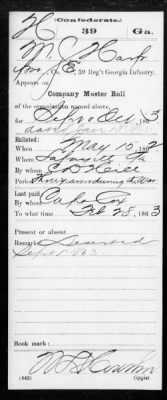 (Confederate.)
H 39 Ga.
M. J. Harp
Co. E, 39 Reg't Georgia Infantry.
Appears on
Company Muster Roll
of the organization named above,
for Sept & Oct, 1863
dated Jan 18
Enlisted:
When May 10, 1862
Where Lafayette Ga
By
Period 3 years or during the War
Last paid:
By Capt Cox
To what time Feb 28, 1863
Present or absent
Remarks: Deserted
Sept 1863
Book mark:
(642)